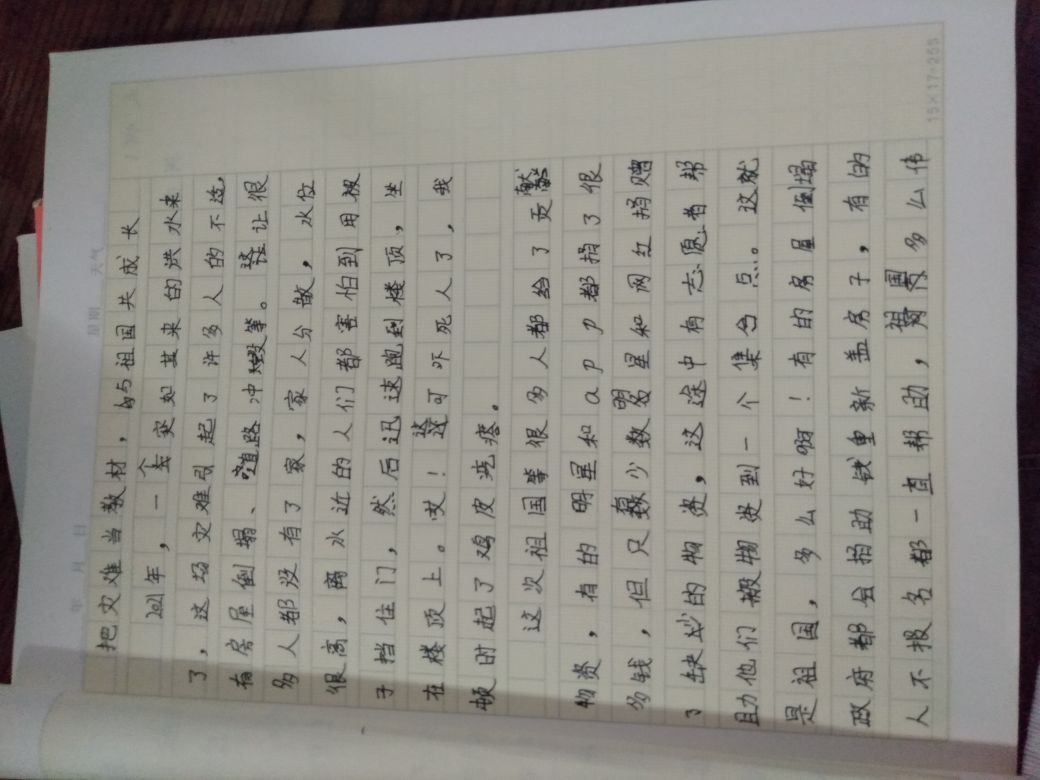 年 月 日 星期 天气
把灾难当教材，与祖国共成长
2021年，一个突如其来的洪水来
了，这场灾难引起了许多人的不适，
有房屋倒塌、道路冲毁等。这让很
多人都没有了家，家人分散，水位
很高，离水近的人们都害怕到用被
子挡住门，然后迅速跑到楼顶，坐
在楼顶上。哎！这可吓死人了，我
顿时起了鸡皮疙瘩。
这次祖国等很多人都给了贡献
物资，有的明星和app都捐了很
多钱，但只少数明星和网红捐赠
了缺少的物资，这途中有志愿者帮
助他们搬物资到一个集合点。这就
是祖国，多么好啊！有的房屋倒塌
政府都会拍助钱重新盖房子，有的
人不报名都一直帮助，祖国多么伟
15×17=255